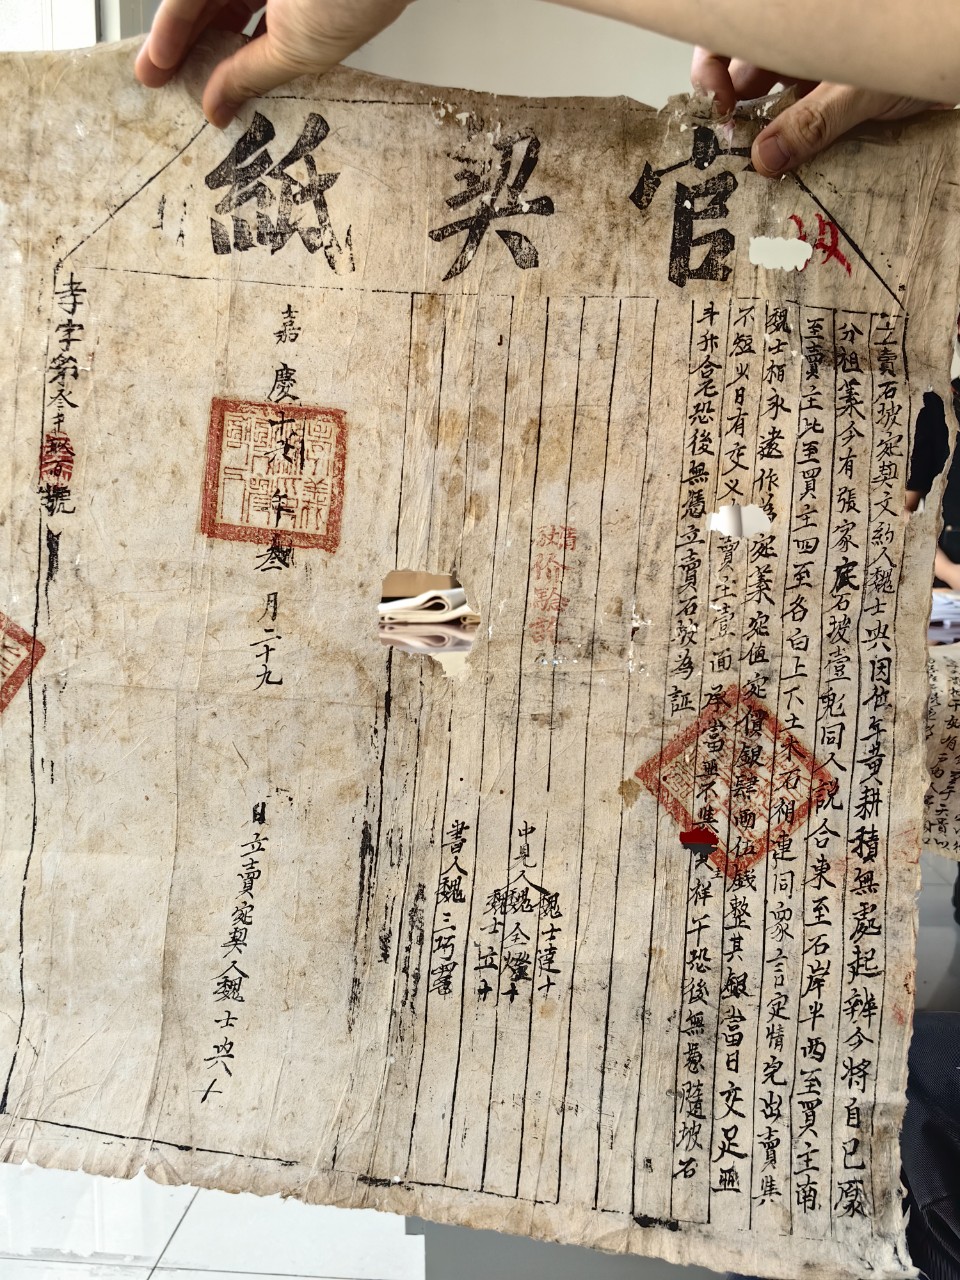 官契紙
立賣石坡宛契文約人魏士興因為年荒耕積無處起辦今將自己原
分祖業今有張家底石坡壹塊同人說合東至石岸半西至買主南
至賣主北至買主四至各白上下土木石相連同眾言定情宛出賣與
魏士相永遠作為宛業宛值宛價銀肆両伍戲整其銀當日交足並
不短少日有交义賣主壹面承當並不與買主祥干恐後無憑隨坡石
斗升合乇恐後無憑立賣石坡為証
驗訖
魏士達十
中見人魏全燈十
魏士立十
書人魏三巧筆
嘉慶十六年叁月二十九日立賣宛契人魏士興十
孝字第叁千百號